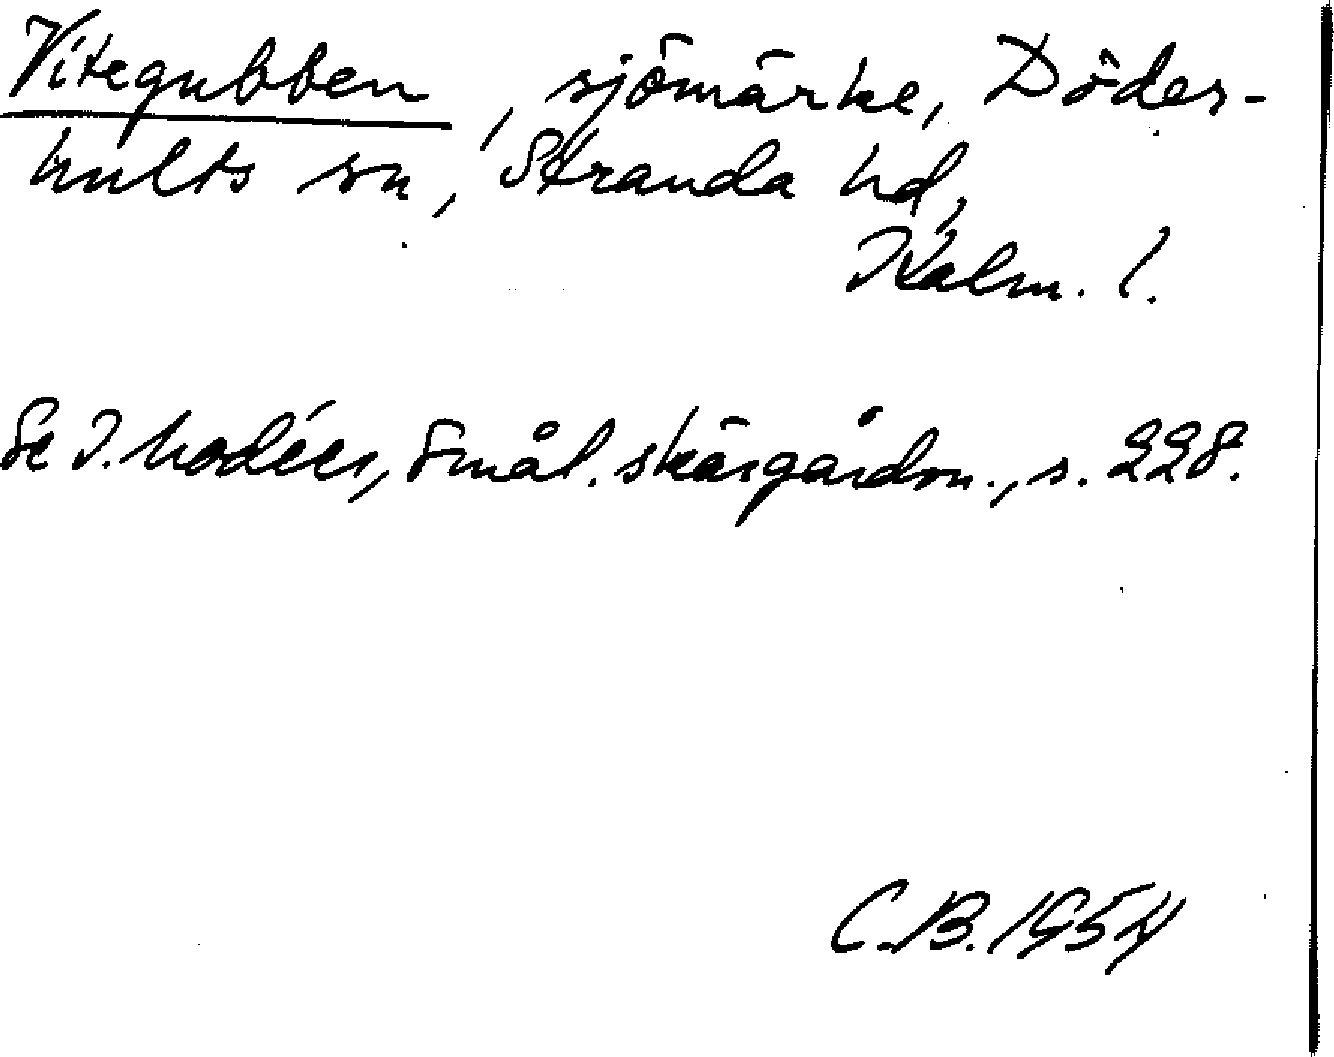 Vitegubben, sjömärke, Döders-
hults sn, Stranda hd,
Kalm. l.
Se I. Modéer, Smål. skärgårdsn., s. 228.
C.B. 1954